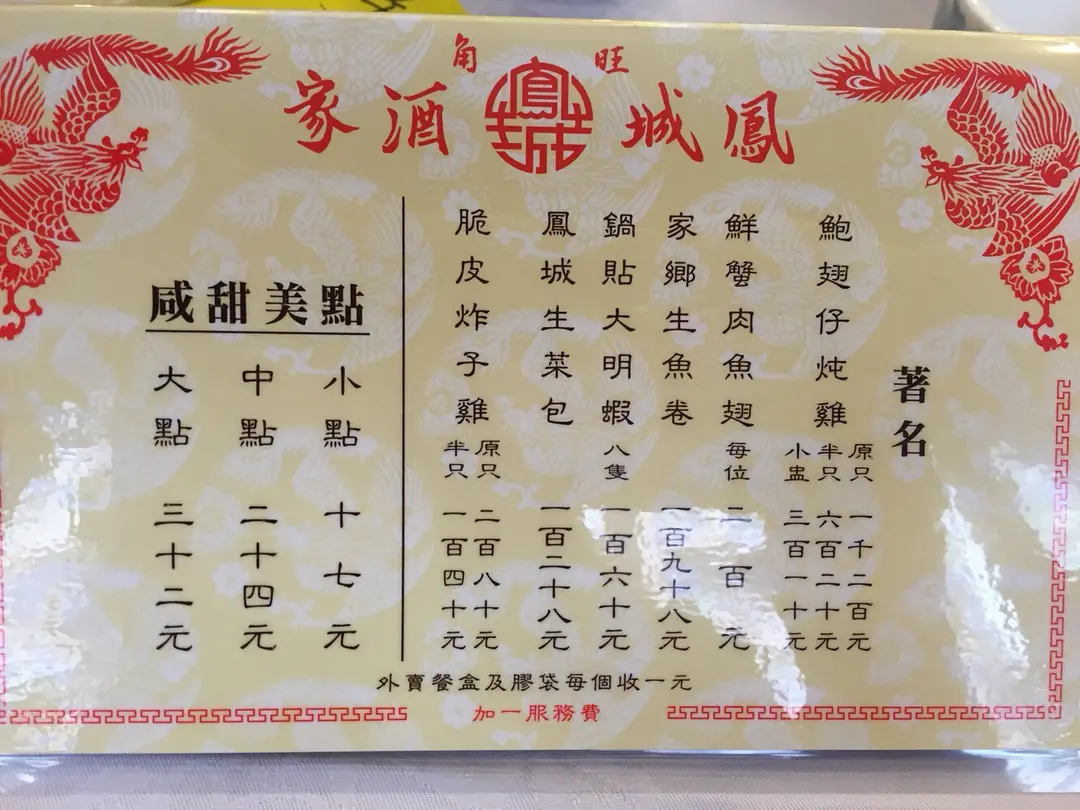 旺角
鳳城酒家
鳳城
著名
鮑翅仔炖雞 原只 一千二百元
半只 六百二十元
小盅 三百一十元
鮮蟹肉魚翅 每位 二百元
家鄉生魚卷 一百九十八元
鍋貼大明蝦 八隻 一百六十元
鳳城生菜包 一百二十八元
脆皮炸子雞 原只 二百八十元
半只 一百四十元
咸甜美點
小點 十七元
中點 二十四元
大點 三十二元
外賣餐盒及膠袋每個收一元
加一服務費